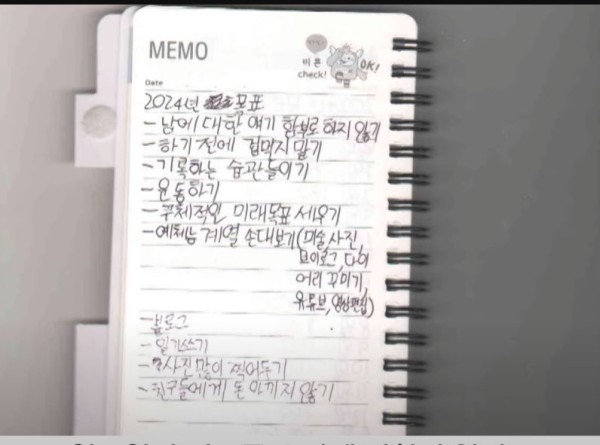 MEMO
비 콘
check!
OK!
Date
2024년 목표
- 남에 대한 얘기 함부로 하지 않기
- 하기 전에 겁먹지 말기
- 기록하는 습관들이기
- 운동하기
- 구체적인 미래목표 세우기
- 예체능 계열 손대보기(미술, 사진,
브이로그, 다이
어리 꾸미기,
유튜브, 영상편집)
- 블로그
- 일기쓰기
- 사진 많이 찍어두기
- 친구들에게 돈 아끼지 않기